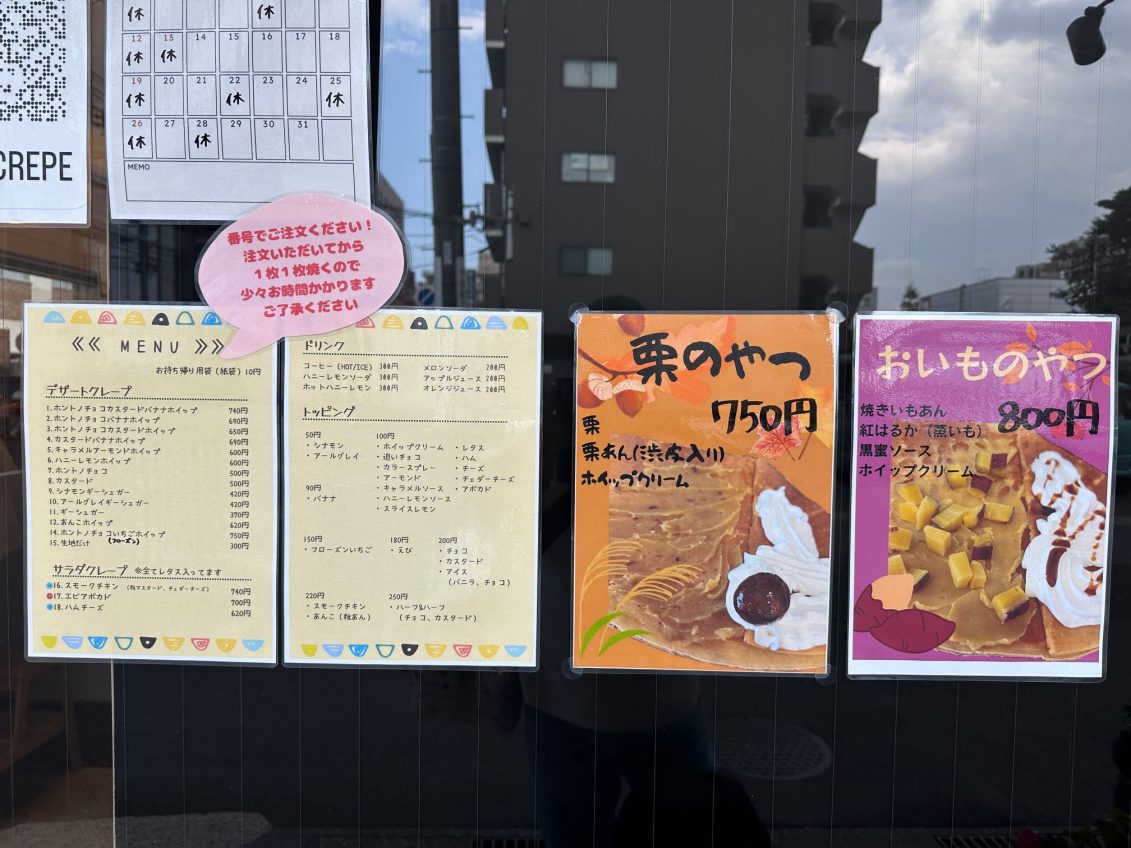 CREPE
休
休
12 13 14 15 16 17 18
休 休
19 20 21 22 23 24 25
休 休 休
26 27 28 29 30 31
休 休
MEMO
番号でご注文ください！
注文いただいてから
１枚１枚焼くので
少々お時間かかります
ご了承ください
≪ MENU ≫
お持ち帰り用袋（紙袋）10円
デザートクレープ
1.ホントノチョコカスタードバナナホイップ 740円
2.ホントノチョコバナナホイップ 690円
3.ホントノチョコカスタードホイップ 650円
4.カスタードバナナホイップ 690円
5.キャラメルアーモンドホイップ 600円
6.ハニーレモンホイップ 600円
7.ホントノチョコ 500円
8.カスタード 500円
9.シナモンギーシュガー 420円
10.アールグレイギーシュガー 420円
11.ギーシュガー 370円
12.あんこホイップ 620円
14.ホントノチョコいちごホイップ 750円
(フローズン)
15.生地だけ 300円
サラダクレープ ※全てレタス入ってます
16.スモークチキン （粒マスタード、チェダーチーズ） 740円
17.エビアボカド 700円
18.ハムチーズ 620円
ドリンク
コーヒー（HOT/ICE）300円 メロンソーダ 200円
ハニーレモンソーダ 300円 アップルジュース 200円
ホットハニーレモン 300円 オレンジジュース 200円
トッピング
50円
・シナモン
・アールグレイ
90円
・バナナ
100円
・ホイップクリーム ・レタス
・追いチョコ ・ハム
・カラースプレー ・チーズ
・アーモンド ・チェダーチーズ
・キャラメルソース ・アボカド
・ハニーレモンソース
・スライスレモン
150円
・フローズンいちご
180円
・えび
200円
・チョコ
・カスタード
・アイス
（バニラ、チョコ）
220円
・スモークチキン
・あんこ（粒あん）
250円
・ハーフ&ハーフ
（チョコ、カスタード）
栗のやつ
750円
栗
栗あん(渋皮入り)
ホイップクリーム
おいものやつ
800円
焼きいもあん
紅はるか（蒸いも）
黒蜜ソース
ホイップクリーム